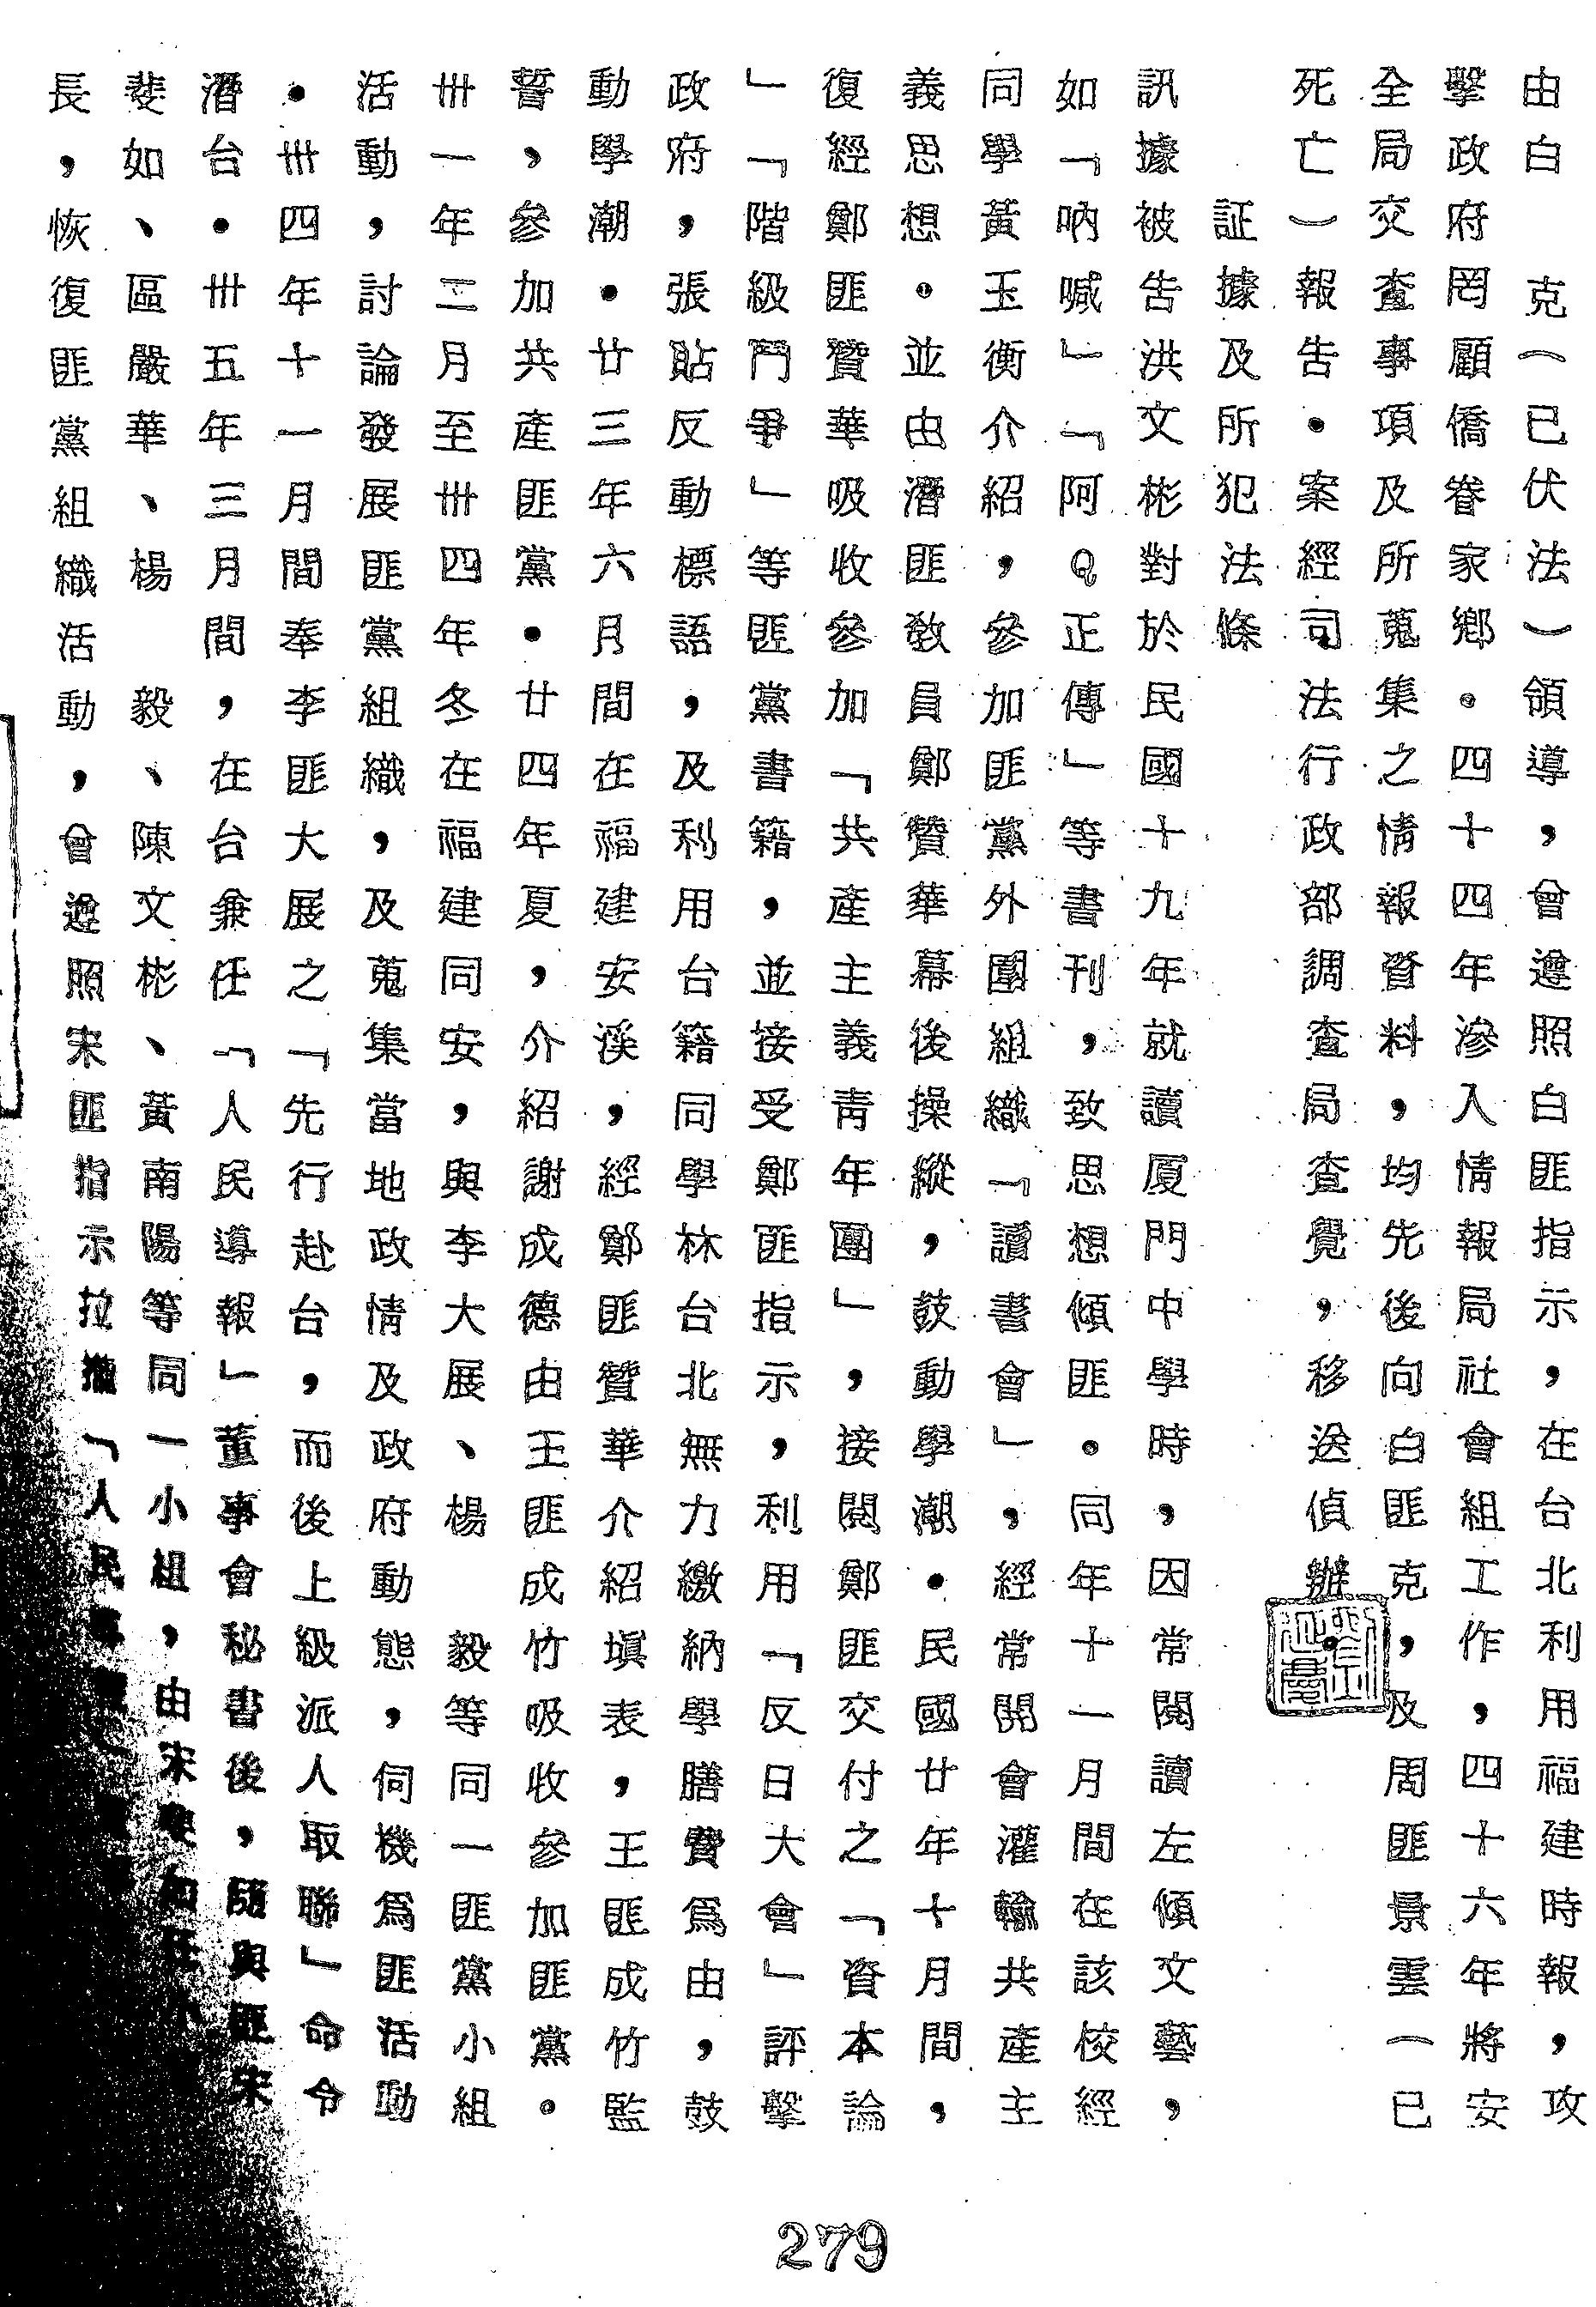 由白　克（已伏法）領導，會遵照白匪指示，在台北利用福建時報，攻
擊政府罔顧僑眷家鄉。四十四年滲入情報局社會組工作，四十六年將安
全局交查事項及所蒐集之情報資料，均先後向白匪克，及周匪景雲（已
死亡）報告．案經司法行政部調查局，查覺，移送偵辦．
証據及所犯法條
訊據被告洪文彬對於民國十九年就讀厦門中學時，因常閱讀左傾文藝，
如「吶喊」「阿Q正傳」等書刊，致思想傾匪。同年十一月間在該校經
同學黃玉衡介紹，參加匪黨外圍組織「讀書會」，經常開會灌輸共產主
義思想。並由潛匪教員鄭贊華幕後操縱，鼓動學潮．民國廿年十月間，
復經鄭匪贊華吸收參加「共產主義青年團」，接閱鄭匪交付之「資本論
」「階級鬥爭」等匪黨書籍，並接受鄭匪指示，利用「反日大會」評擊
政府，張貼反動標語，及利用台籍同學林台北無力繳納學膳費為由，鼓
動學潮．廿三年六月間在福建安溪，經鄭匪贊華介紹填表，王匪成竹監
誓，參加共產匪黨．廿四年夏，介紹謝成德由王匪成竹吸收參加匪黨。
卅一年二月至卅四年冬在福建同安，與李大展、楊　毅等同一匪黨小組
活動，討論發展匪黨組織，及蒐集當地政情及政府動態，伺機為匪活動
．卅四年十一月間奉李匪大展之「先行赴台，而後上級派人取聯」命令
潛台．卅五年三月間，在台兼任「人民導報」董事會秘書後，隨與匪宋
斐如、區嚴華、楊　毅、陳文彬、黃南陽等同一小組，由宋斐如任小
長，恢復匪黨組織活動，會遵照宋匪指示拉攏「人民導報
279